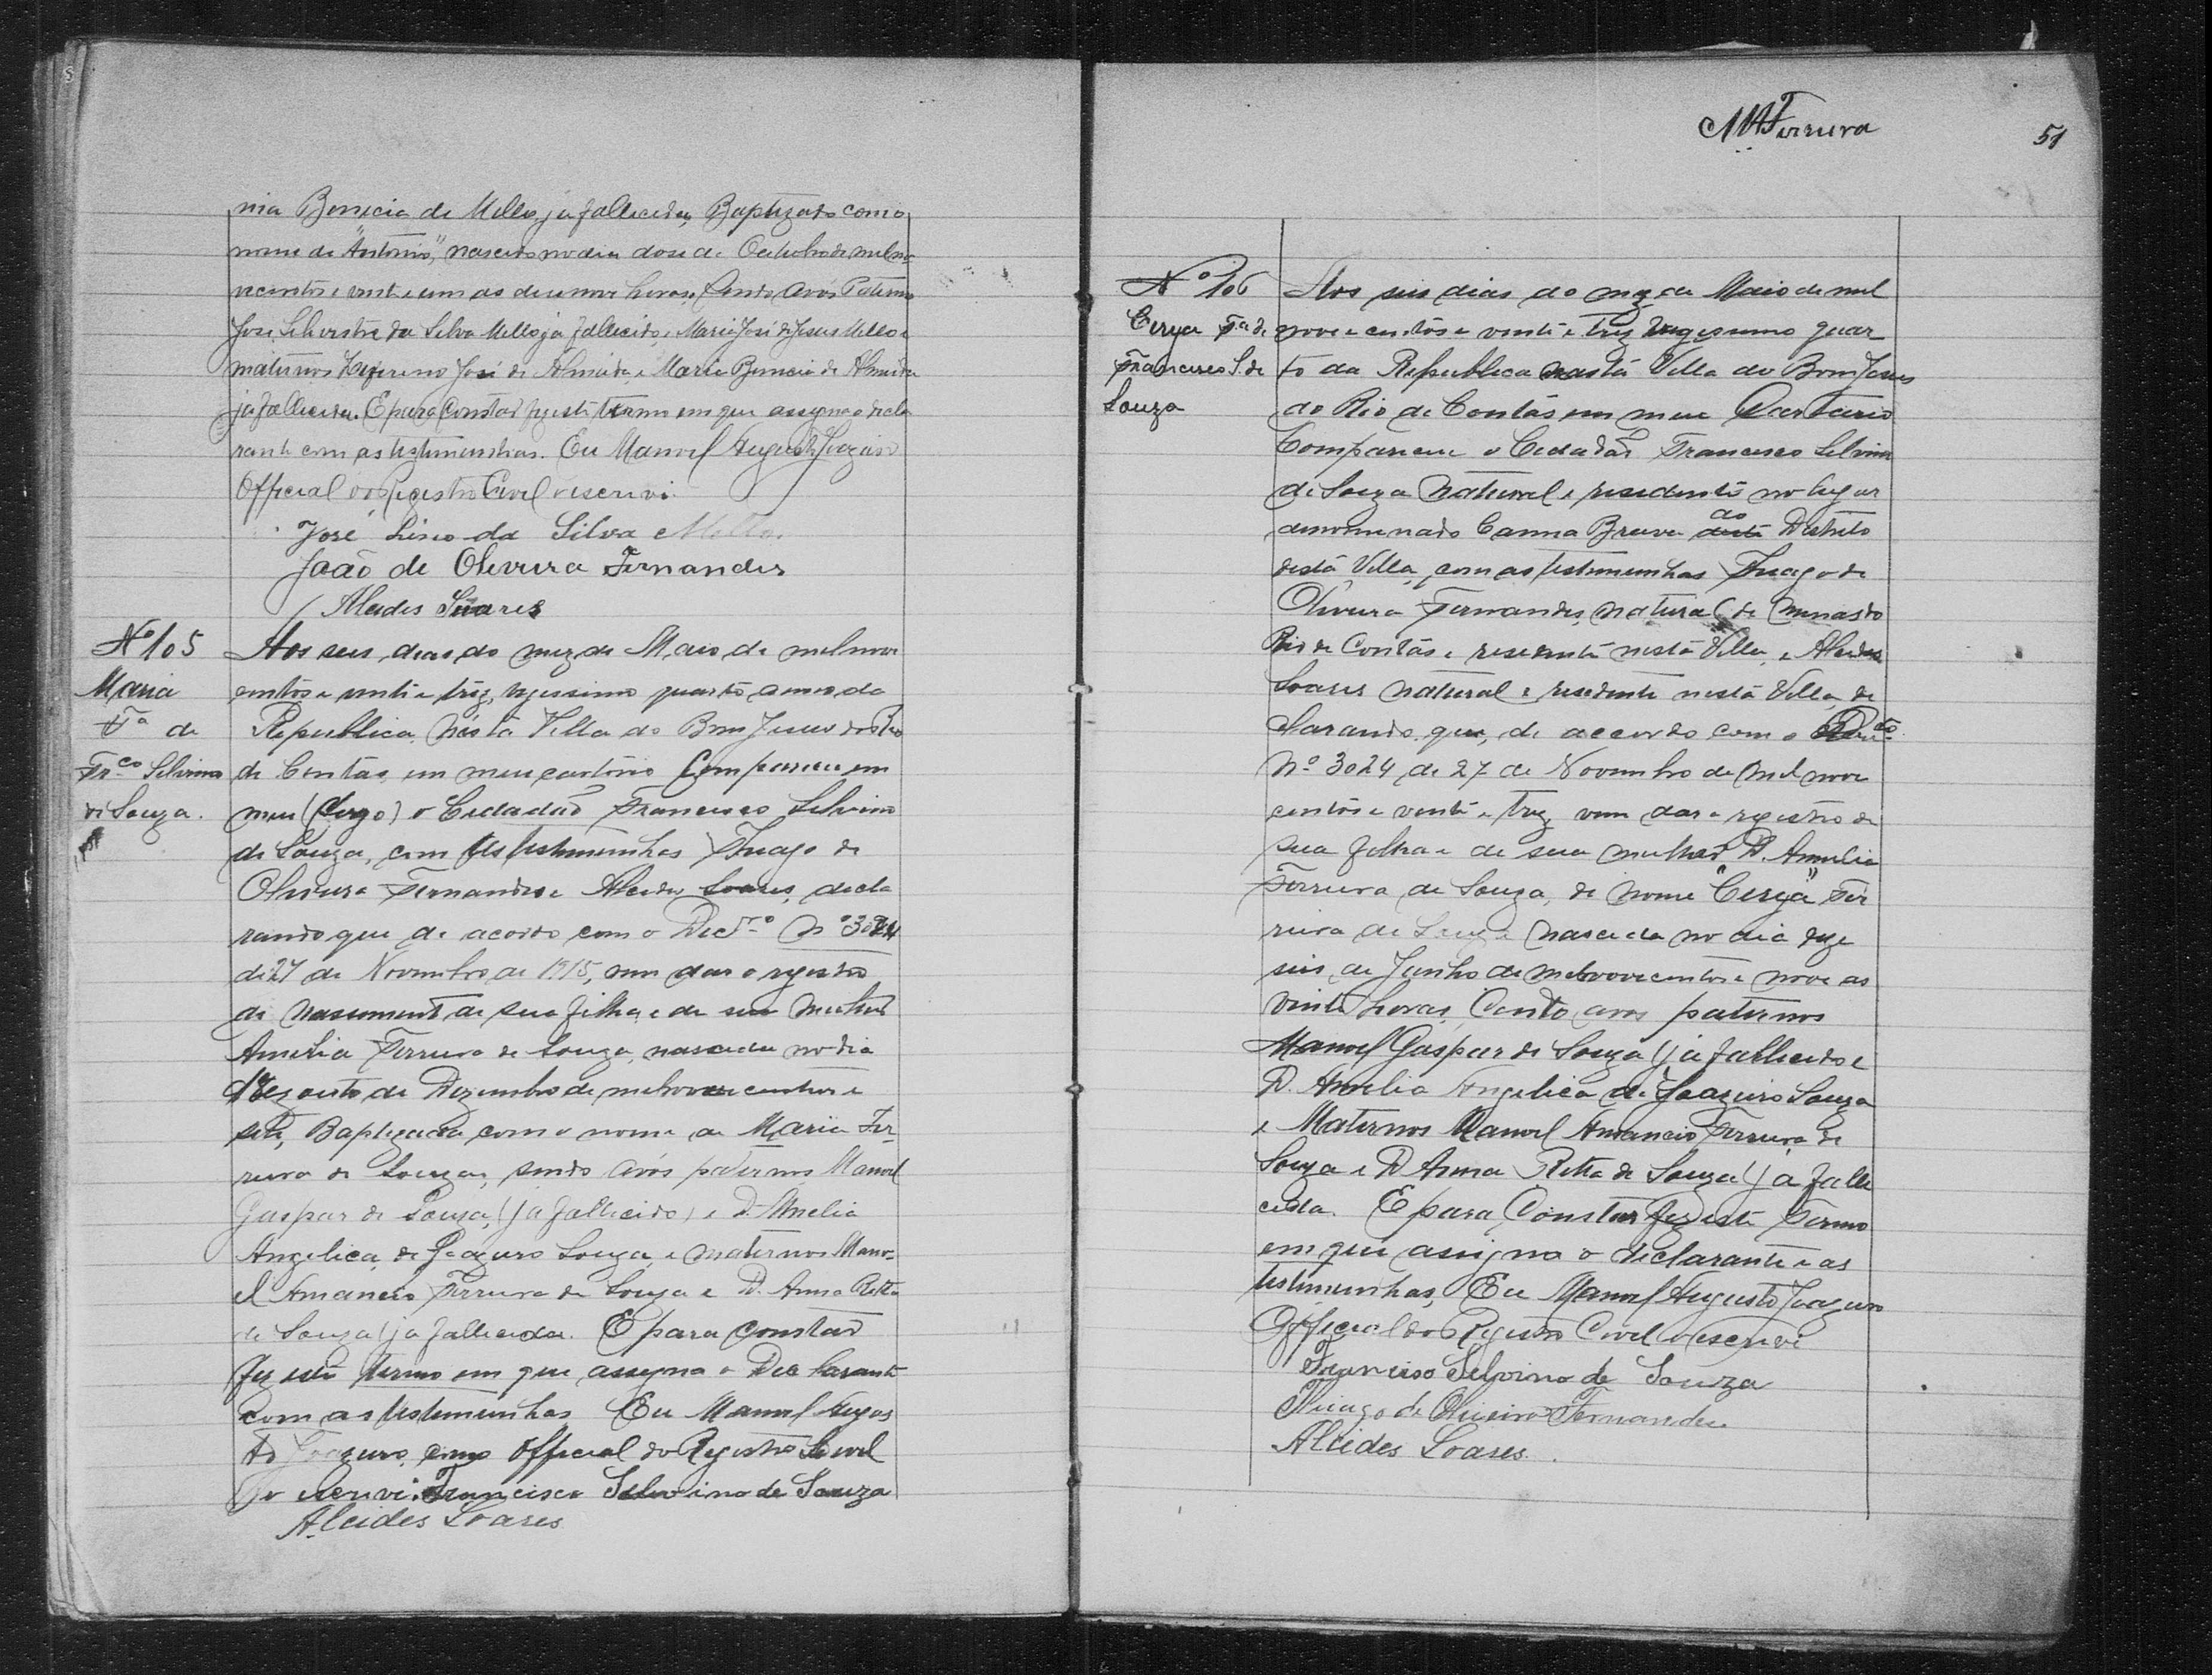 nia Bonicia de Mello, ja fallecida, Baptizado com o
nome de "Antonio," nascido no dia dose de Outubro de mil no-
vecentos e vinte e um as desenove horas, Sendo avós Paternos
José Silvestre da Silva Mello ja fallecido, e Maria José de Jesus Mello e
maternos Zeferino José de Almeida, e Maria Bonicia de Almeida
ja fallecida. E para Constar fiz este termo em que assigna o decla
rante com as testimunhas. Eu Manoel Augusto Joazeiro
Official do Registro Civel o escrevi.
José Lino da Silva Mello.
João de Oliveira Fernandes
Alcides Soares
Nº 105
Maria
Fª de
Frco Silvino
de Souza.
Aos seis dias do mez de Maio de mil nove
centos e vinte e trez, trigessimo quarto anno da
Republica, nésta Villa do Bom Jesus do Rio
de Contas, em meu cartorio Compareceu em
meu (digo) o Cidadão Francisco Silvino
de Souza, com as testimunhas Thiago de
Oliveira Fernandes e Alcides Soares, decla
rando que de acordo com o Decto Nº 3024
de 27 de Novembro de 1915, vem dar o registro
de nascimento de sua filha, e de sua mulher
Amelia Ferreira de Souza, nascida no dia
dezoito de Dezembro de mil novecentos e
sete, Baptizada com o nome de Maria Fer-
reira de Souza, sendo avós paternos Manoel
Gaspar de Souza, (ja fallecido) e D. Amelia
Angelica de Joazeiro Souza, e maternos Mano-
el Amancio Ferreira de Souza e D. Anna Ritta
de Souza (ja fallecida. E para constar
fiz este termo em que assigna o Declarante
com as testimunhas Eu Manoel Augus
to Joazeiro, como Official do Registro Civel
o escrevi. Francisco Silvino de Souza
Alcides Soares
MAFerreira
51
Nº 106
Cerya Fª de
Francisco S. de
Souza
Aos seis dias do mez de Maio de mil
nove e centos e vinte e trez trigessimo quar
to da Republica nesta Villa do Bom Jesus
do Rio de Contas em meu Cartorio
Compareceu o Cidadão Francisco Silvino
de Souza natural e residente no lugar
denominado Canna Brava do Distrito
desta Villa, com as testimunhas Thiago de
Oliveira Fernandes, natural de Minas do
Rio de Contas e residente nesta Villa, e Alcides
Soares natural e residente nesta Villa, de
clarando que, de accordo com o Decto
Nº 3024 de 27 de Novembro de mil nove
centos e vinte e trez vem dar o registro de
sua filha e de sua mulher D. Amelia
Ferreira de Souza, de nome "Cerya" Fer
reira de Souza nascida no dia deze
seis de Junho de mil novecentos e nove as
vinte horas, Sendo avós paternos
Manoel Gaspar de Souza (ja fallecido e
D. Amelia Angelica de Joazeiro Souza
e Maternos Manoel Amancio Ferreira de
Souza e D Anna Ritta de Souza (ja falle
cida. E para Constar fiz este termo
em que assigna o declarante e as
testimunhas, Eu Manoel Augusto Joazeiro
Official do Registro Civel o escrevi
Francisco Silvino de Souza
Thiago de Oliveira Fernandes
Alcides Soares.